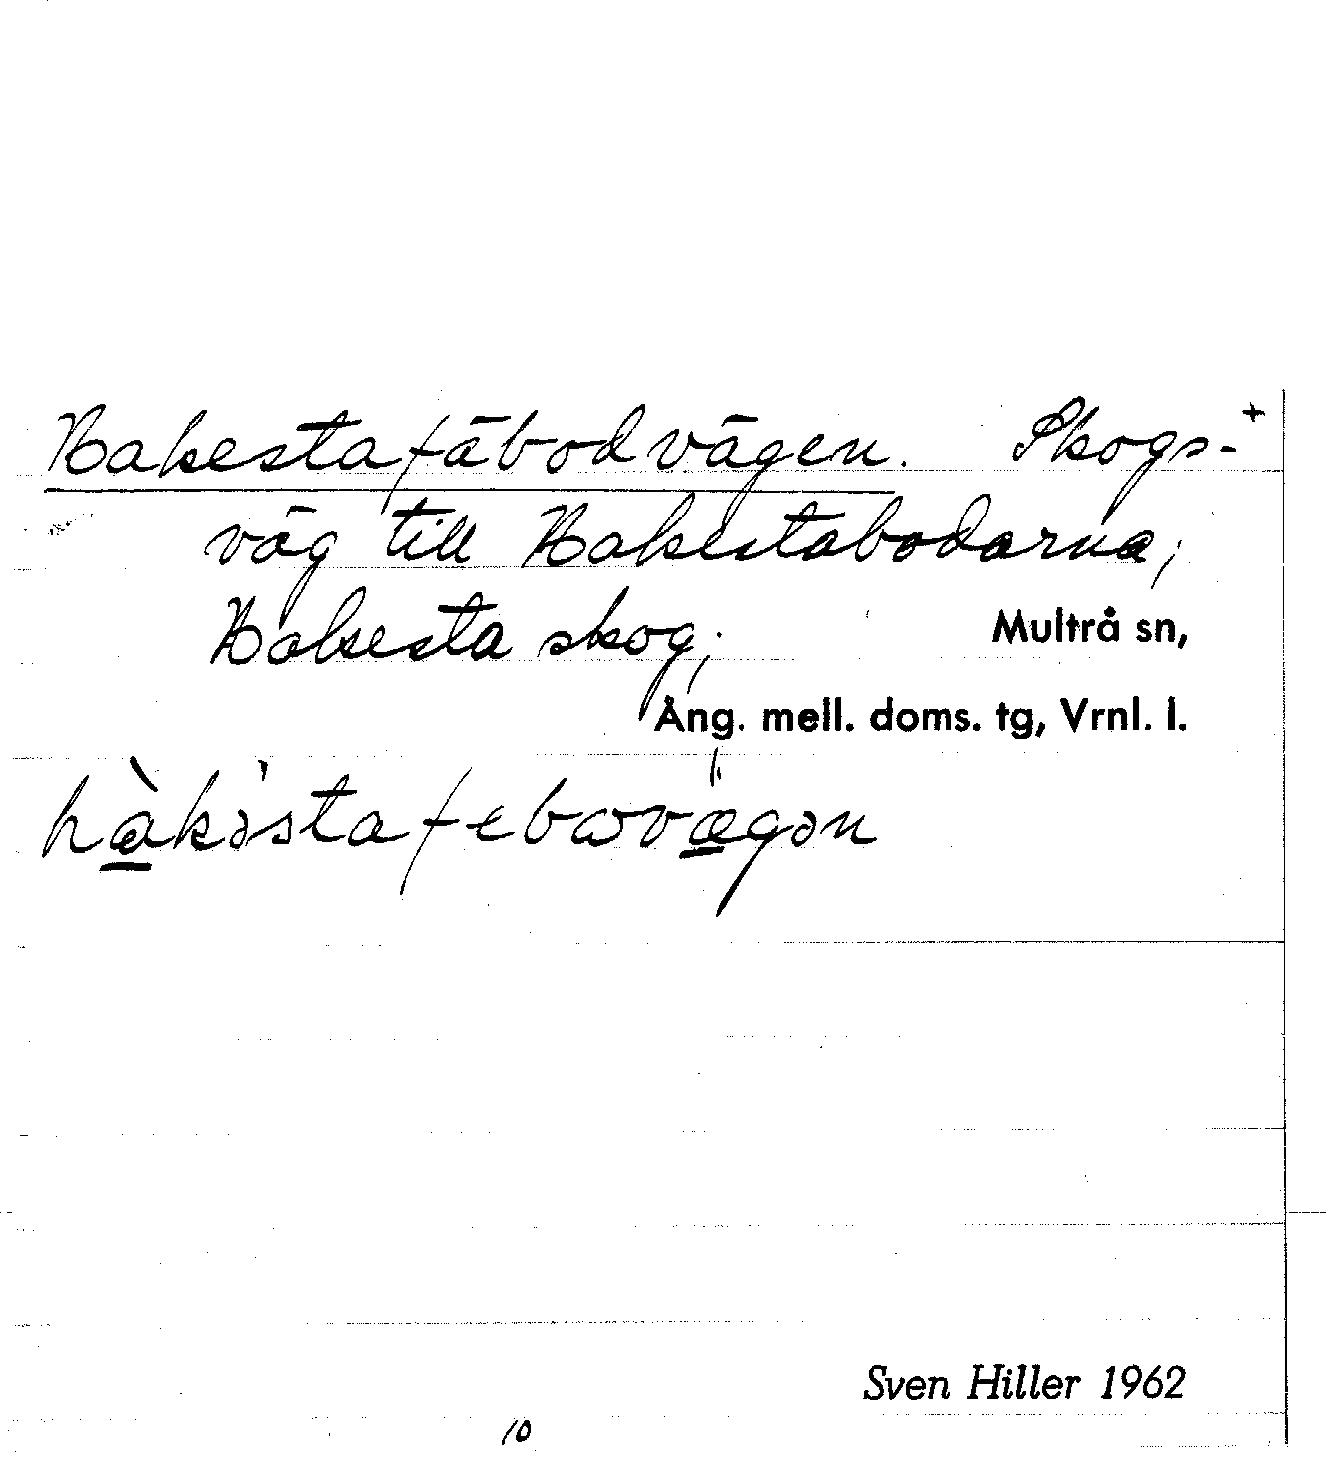 Hakestafäbodvägen. Skogs-+
väg till Hakestabodarna;
Hakesta skog; Multrå sn,
Ång. mell. doms. tg, Vrnl. l.
hàkəstafebωvægən
Sven Hiller 1962
10